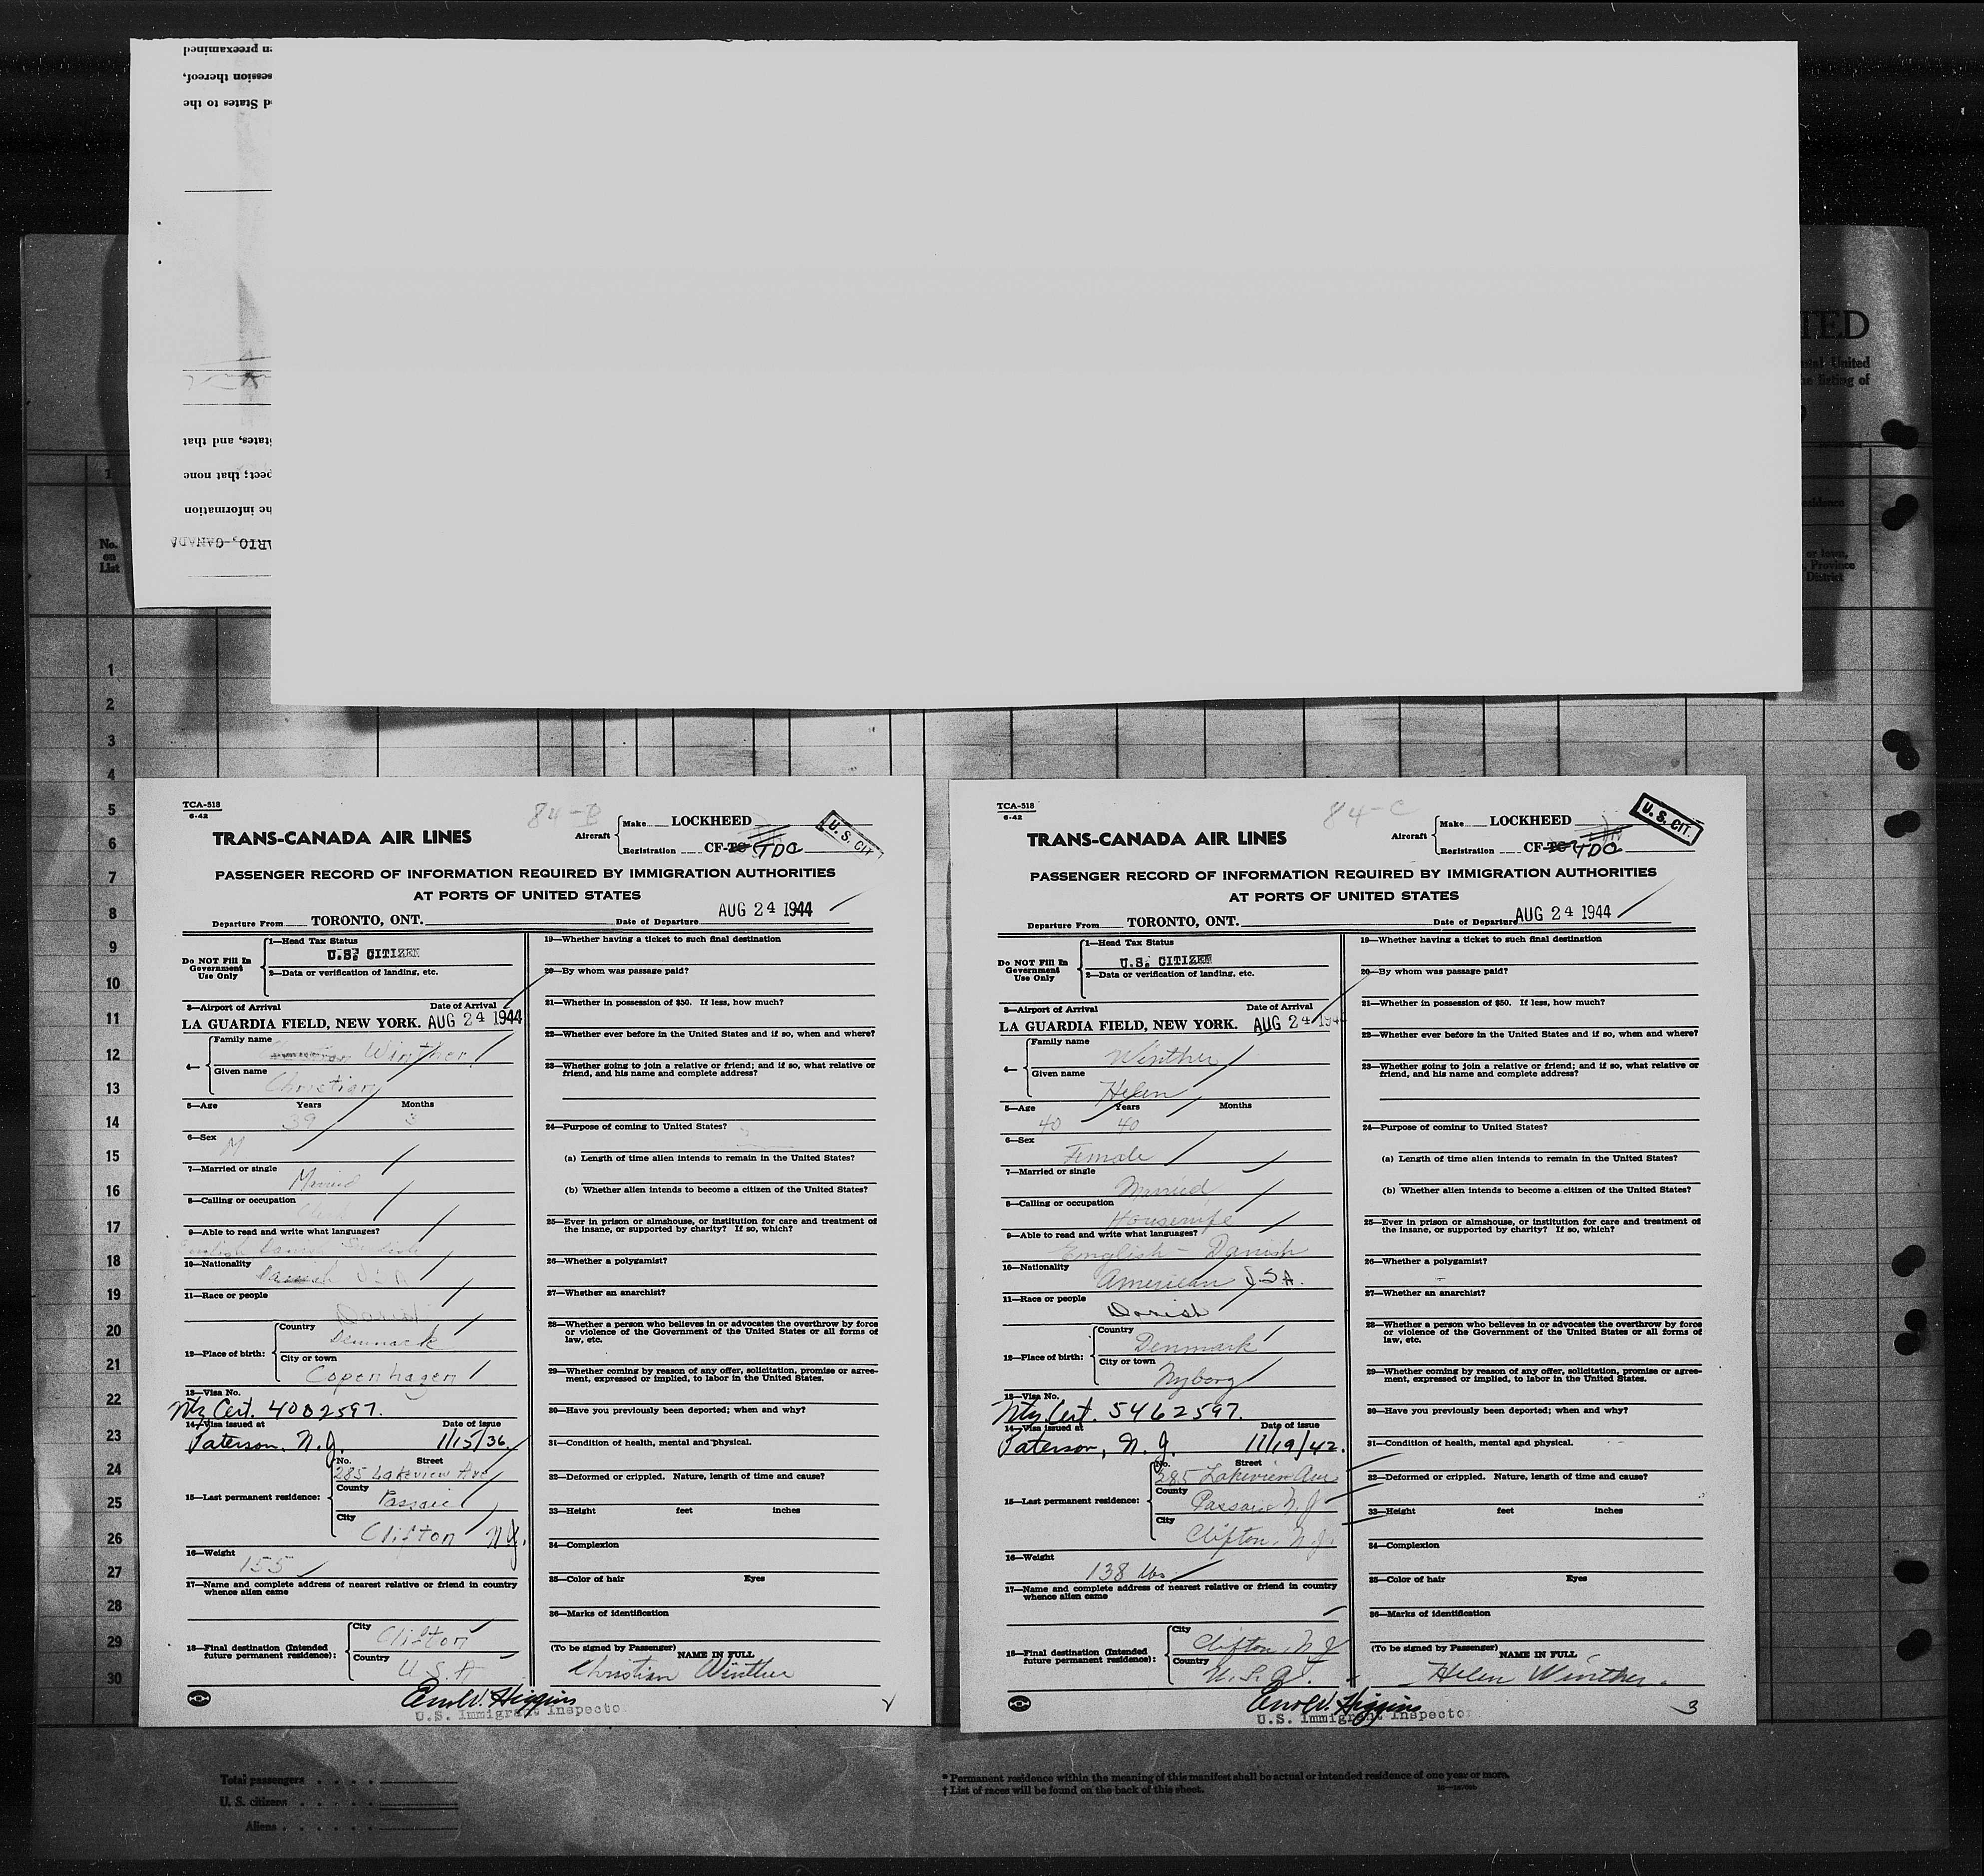 en preexamined
session thereof,
d States to the
States, and that
pect; that none
he information
ARIO, CANADA
TED
ntal United
he listing of
1
No.
on
List
sidence
or town,
, Province
District
1
2
3
4
5
6
7
8
9
10
11
12
13
14
15
16
17
18
19
20
21
22
23
24
25
26
27
28
29
30
TCA-518
6-42
84-B
TRANS-CANADA AIR LINES
Aircraft
Make LOCKHEED
Registration CF-TC TDC
U. S. CIT.
PASSENGER RECORD OF INFORMATION REQUIRED BY IMMIGRATION AUTHORITIES
AT PORTS OF UNITED STATES
Departure From TORONTO, ONT. Date of Departure AUG 24 1944
Do NOT Fill In
Government
Use Only
1—Head Tax Status
U.S. CITIZEN
2—Data or verification of landing, etc.
3—Airport of Arrival Date of Arrival
LA GUARDIA FIELD, NEW YORK. AUG 24 1944
4—
Family name
Winther
Given name
Christian
5—Age Years Months
39 3
6—Sex
M
7—Married or single
Married
8—Calling or occupation
9—Able to read and write what languages?
English Danish
10—Nationality
Danish U S A
11—Race or people
Danish
12—Place of birth:
Country
Denmark
City or town
Copenhagen
13—Visa No.
Ntz Cert. 4002597.
14—Visa issued at Date of issue
Paterson, N.J. 1/15/36
15—Last permanent residence:
No. Street
285 Lakeview Ave
County
Passaic
City
Clifton N.J.
16—Weight
155
17—Name and complete address of nearest relative or friend in country
whence alien came
18—Final destination (Intended
future permanent residence):
City
Clifton
Country
U.S.A
19—Whether having a ticket to such final destination
20—By whom was passage paid?
21—Whether in possession of $50. If less, how much?
22—Whether ever before in the United States and if so, when and where?
23—Whether going to join a relative or friend; and if so, what relative or
friend, and his name and complete address?
24—Purpose of coming to United States?
(a) Length of time alien intends to remain in the United States?
(b) Whether alien intends to become a citizen of the United States?
25—Ever in prison or almshouse, or institution for care and treatment of
the insane, or supported by charity? If so, which?
26—Whether a polygamist?
27—Whether an anarchist?
28—Whether a person who believes in or advocates the overthrow by force
or violence of the Government of the United States or all forms of
law, etc.
29—Whether coming by reason of any offer, solicitation, promise or agree-
ment, expressed or implied, to labor in the United States.
30—Have you previously been deported; when and why?
31—Condition of health, mental and physical.
32—Deformed or crippled. Nature, length of time and cause?
33—Height feet inches
34—Complexion
35—Color of hair Eyes
36—Marks of identification
(To be signed by Passenger)
NAME IN FULL
Christian Winther
Higgins
U.S. Immigrant Inspecto
TCA-518
6-42
84-C
TRANS-CANADA AIR LINES
Aircraft
Make LOCKHEED
Registration CF-TC TDC
U. S. CIT.
PASSENGER RECORD OF INFORMATION REQUIRED BY IMMIGRATION AUTHORITIES
AT PORTS OF UNITED STATES
Departure From TORONTO, ONT. Date of Departure AUG 24 1944
Do NOT Fill In
Government
Use Only
1—Head Tax Status
U.S. CITIZEN
2—Data or verification of landing, etc.
3—Airport of Arrival Date of Arrival
LA GUARDIA FIELD, NEW YORK. AUG 24 194
4—
Family name
Winther
Given name
Helen
5—Age Years Months
40 40
6—Sex
Female
7—Married or single
Married
8—Calling or occupation
Housewife
9—Able to read and write what languages?
English - Danish
10—Nationality
American U.S.A.
11—Race or people
Danish
12—Place of birth:
Country
Denmark
City or town
Nyborg
13—Visa No.
Ntz. Cert. 5462597.
14—Visa issued at Date of issue
Paterson, N.J. 11/19/42.
15—Last permanent residence:
No. Street
285 Lakeview Ave
County
Passaic N.J
City
Clifton, N.J.
16—Weight
138 lbs
17—Name and complete address of nearest relative or friend in country
whence alien came
18—Final destination (Intended
future permanent residence):
City
Clifton, N.J
Country
U.S.A.
19—Whether having a ticket to such final destination
20—By whom was passage paid?
21—Whether in possession of $50. If less, how much?
22—Whether ever before in the United States and if so, when and where?
23—Whether going to join a relative or friend; and if so, what relative or
friend, and his name and complete address?
24—Purpose of coming to United States?
(a) Length of time alien intends to remain in the United States?
(b) Whether alien intends to become a citizen of the United States?
25—Ever in prison or almshouse, or institution for care and treatment of
the insane, or supported by charity? If so, which?
26—Whether a polygamist?
27—Whether an anarchist?
28—Whether a person who believes in or advocates the overthrow by force
or violence of the Government of the United States or all forms of
law, etc.
29—Whether coming by reason of any offer, solicitation, promise or agree-
ment, expressed or implied, to labor in the United States.
30—Have you previously been deported; when and why?
31—Condition of health, mental and physical.
32—Deformed or crippled. Nature, length of time and cause?
33—Height feet inches
34—Complexion
35—Color of hair Eyes
36—Marks of identification
(To be signed by Passenger)
NAME IN FULL
Helen Winther.
Higgins
U.S. Immigrant Inspector
3
Total passengers
U. S. citizens
Aliens
* Permanent residence within the meaning of this manifest shall be actual or intended residence of one year or more.
† List of races will be found on the back of this sheet.